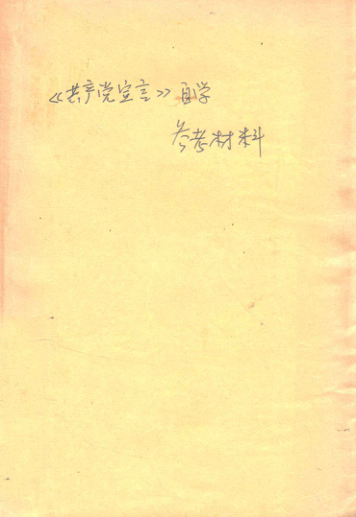 《共产党宣言》自学
参考材料